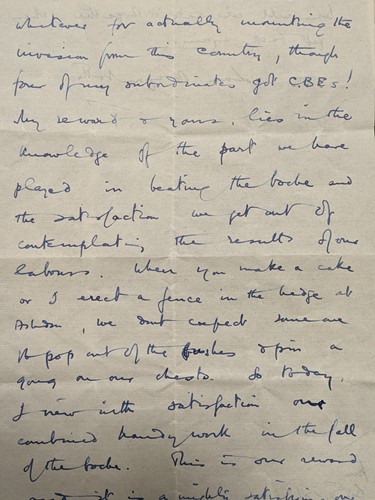 whatever for actually mounting the
invasion from this country, though
four of my subordinates got C.B.Es!
My reward & yours, lies in the
knowledge of the part we have
played in beating the boche and
the satisfaction we get out of
contemplating the results of our
labours. When you make a cake
or I erect a fence in the hedge at
Ashdon, we dont expect some one
to pop out of the bushes & pin a
gong on our chests. So today,
I view with satisfaction our
combined handywork in the fall
of the boche. This is our reward
and it is a mighty satisfying one